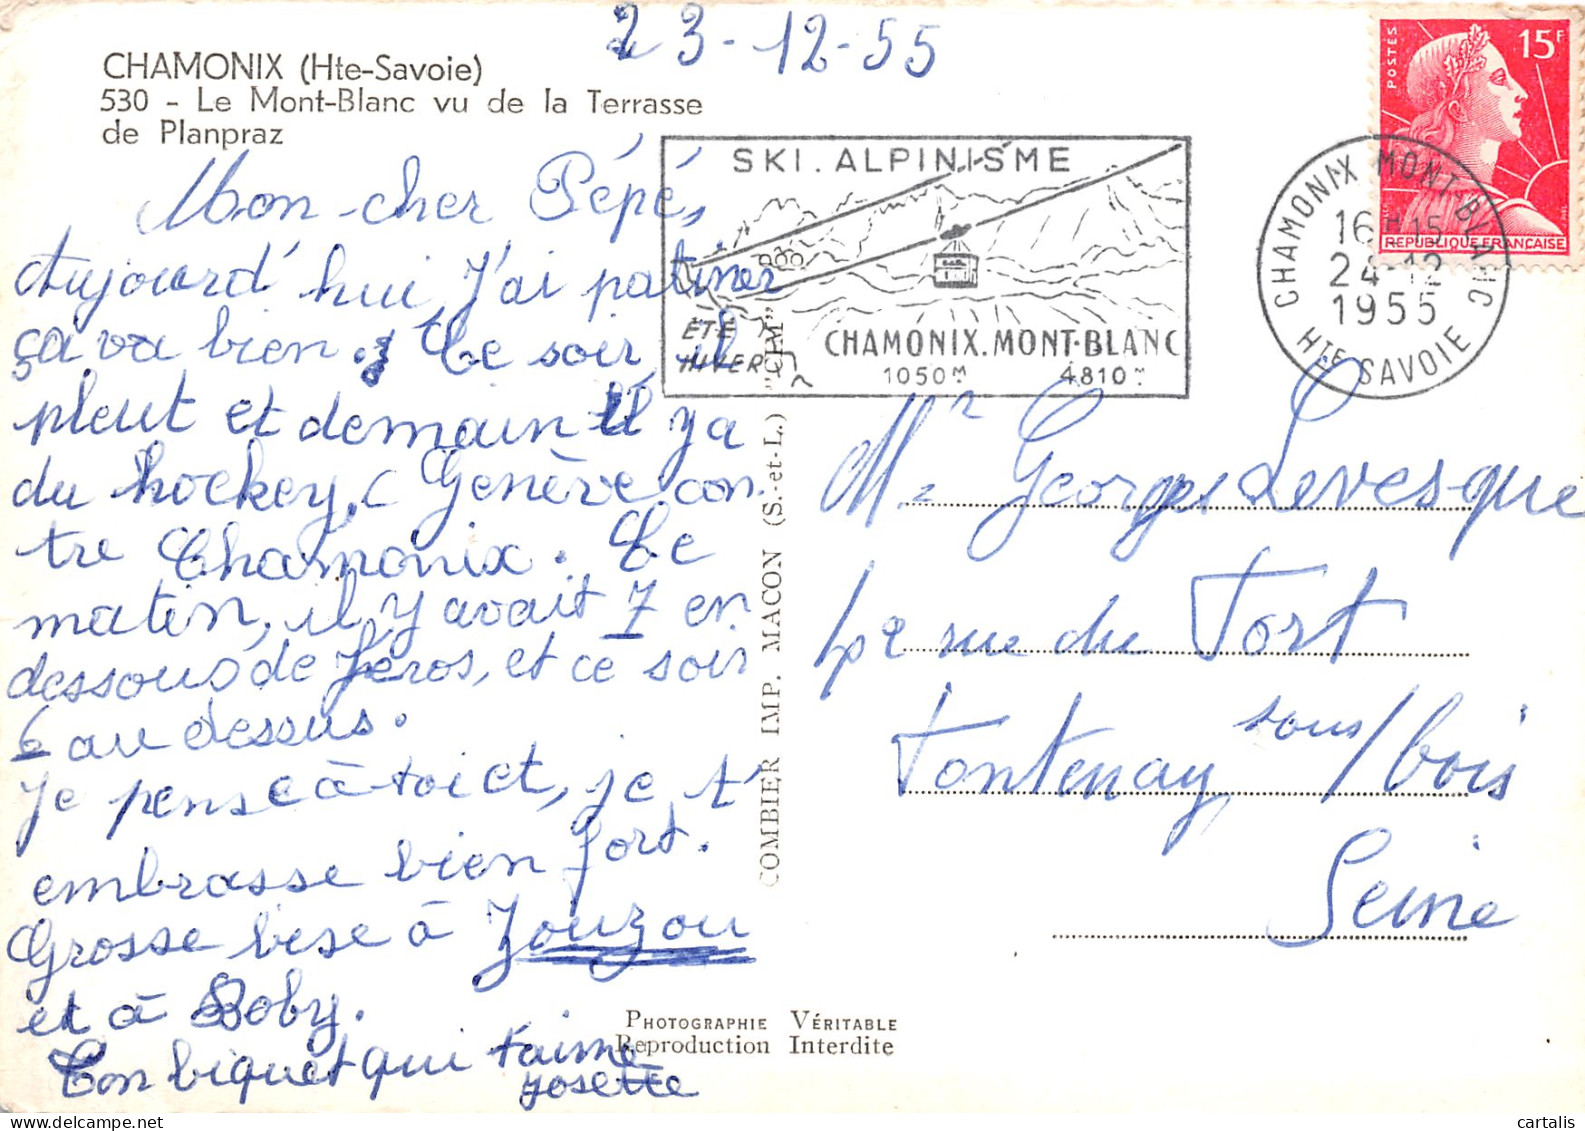 23-12-55
CHAMONIX (Hte-Savoie)
530 - Le Mont-Blanc vu de la Terrasse
de Planpraz
Mon cher Pépé,
Aujourd'hui J'ai patiner
ça va bien. Ce soir il
pleut et demain il y a
du hockey, (Genève con
tre Chamonix. Ce
matin, il y avait 7 en
dessous de Zéros, et ce soir
6 au dessus.
Je pense à toi et, je t'
embrasse bien fort.
Grosse bise à Zouzou
et à Boby.
Ton biquet qui t'aime
Josette
SKI. ALPINISME
ÉTÉ
HIVER
CHAMONIX.MONT-BLANC
1050M 4810M
POSTES
15F
REPUBLIQUE FRANCAISE
CHAMONIX MONT-BLANC
16H15
24-12
1955
HTE SAVOIE
COMBIER IMP. MACON (S.-et-L.) "CIM"
Mr Georges Levesque
42 rue du Fort
Fontenay sous/bois
Seine
PHOTOGRAPHIE VÉRITABLE
Reproduction Interdite
cartalis